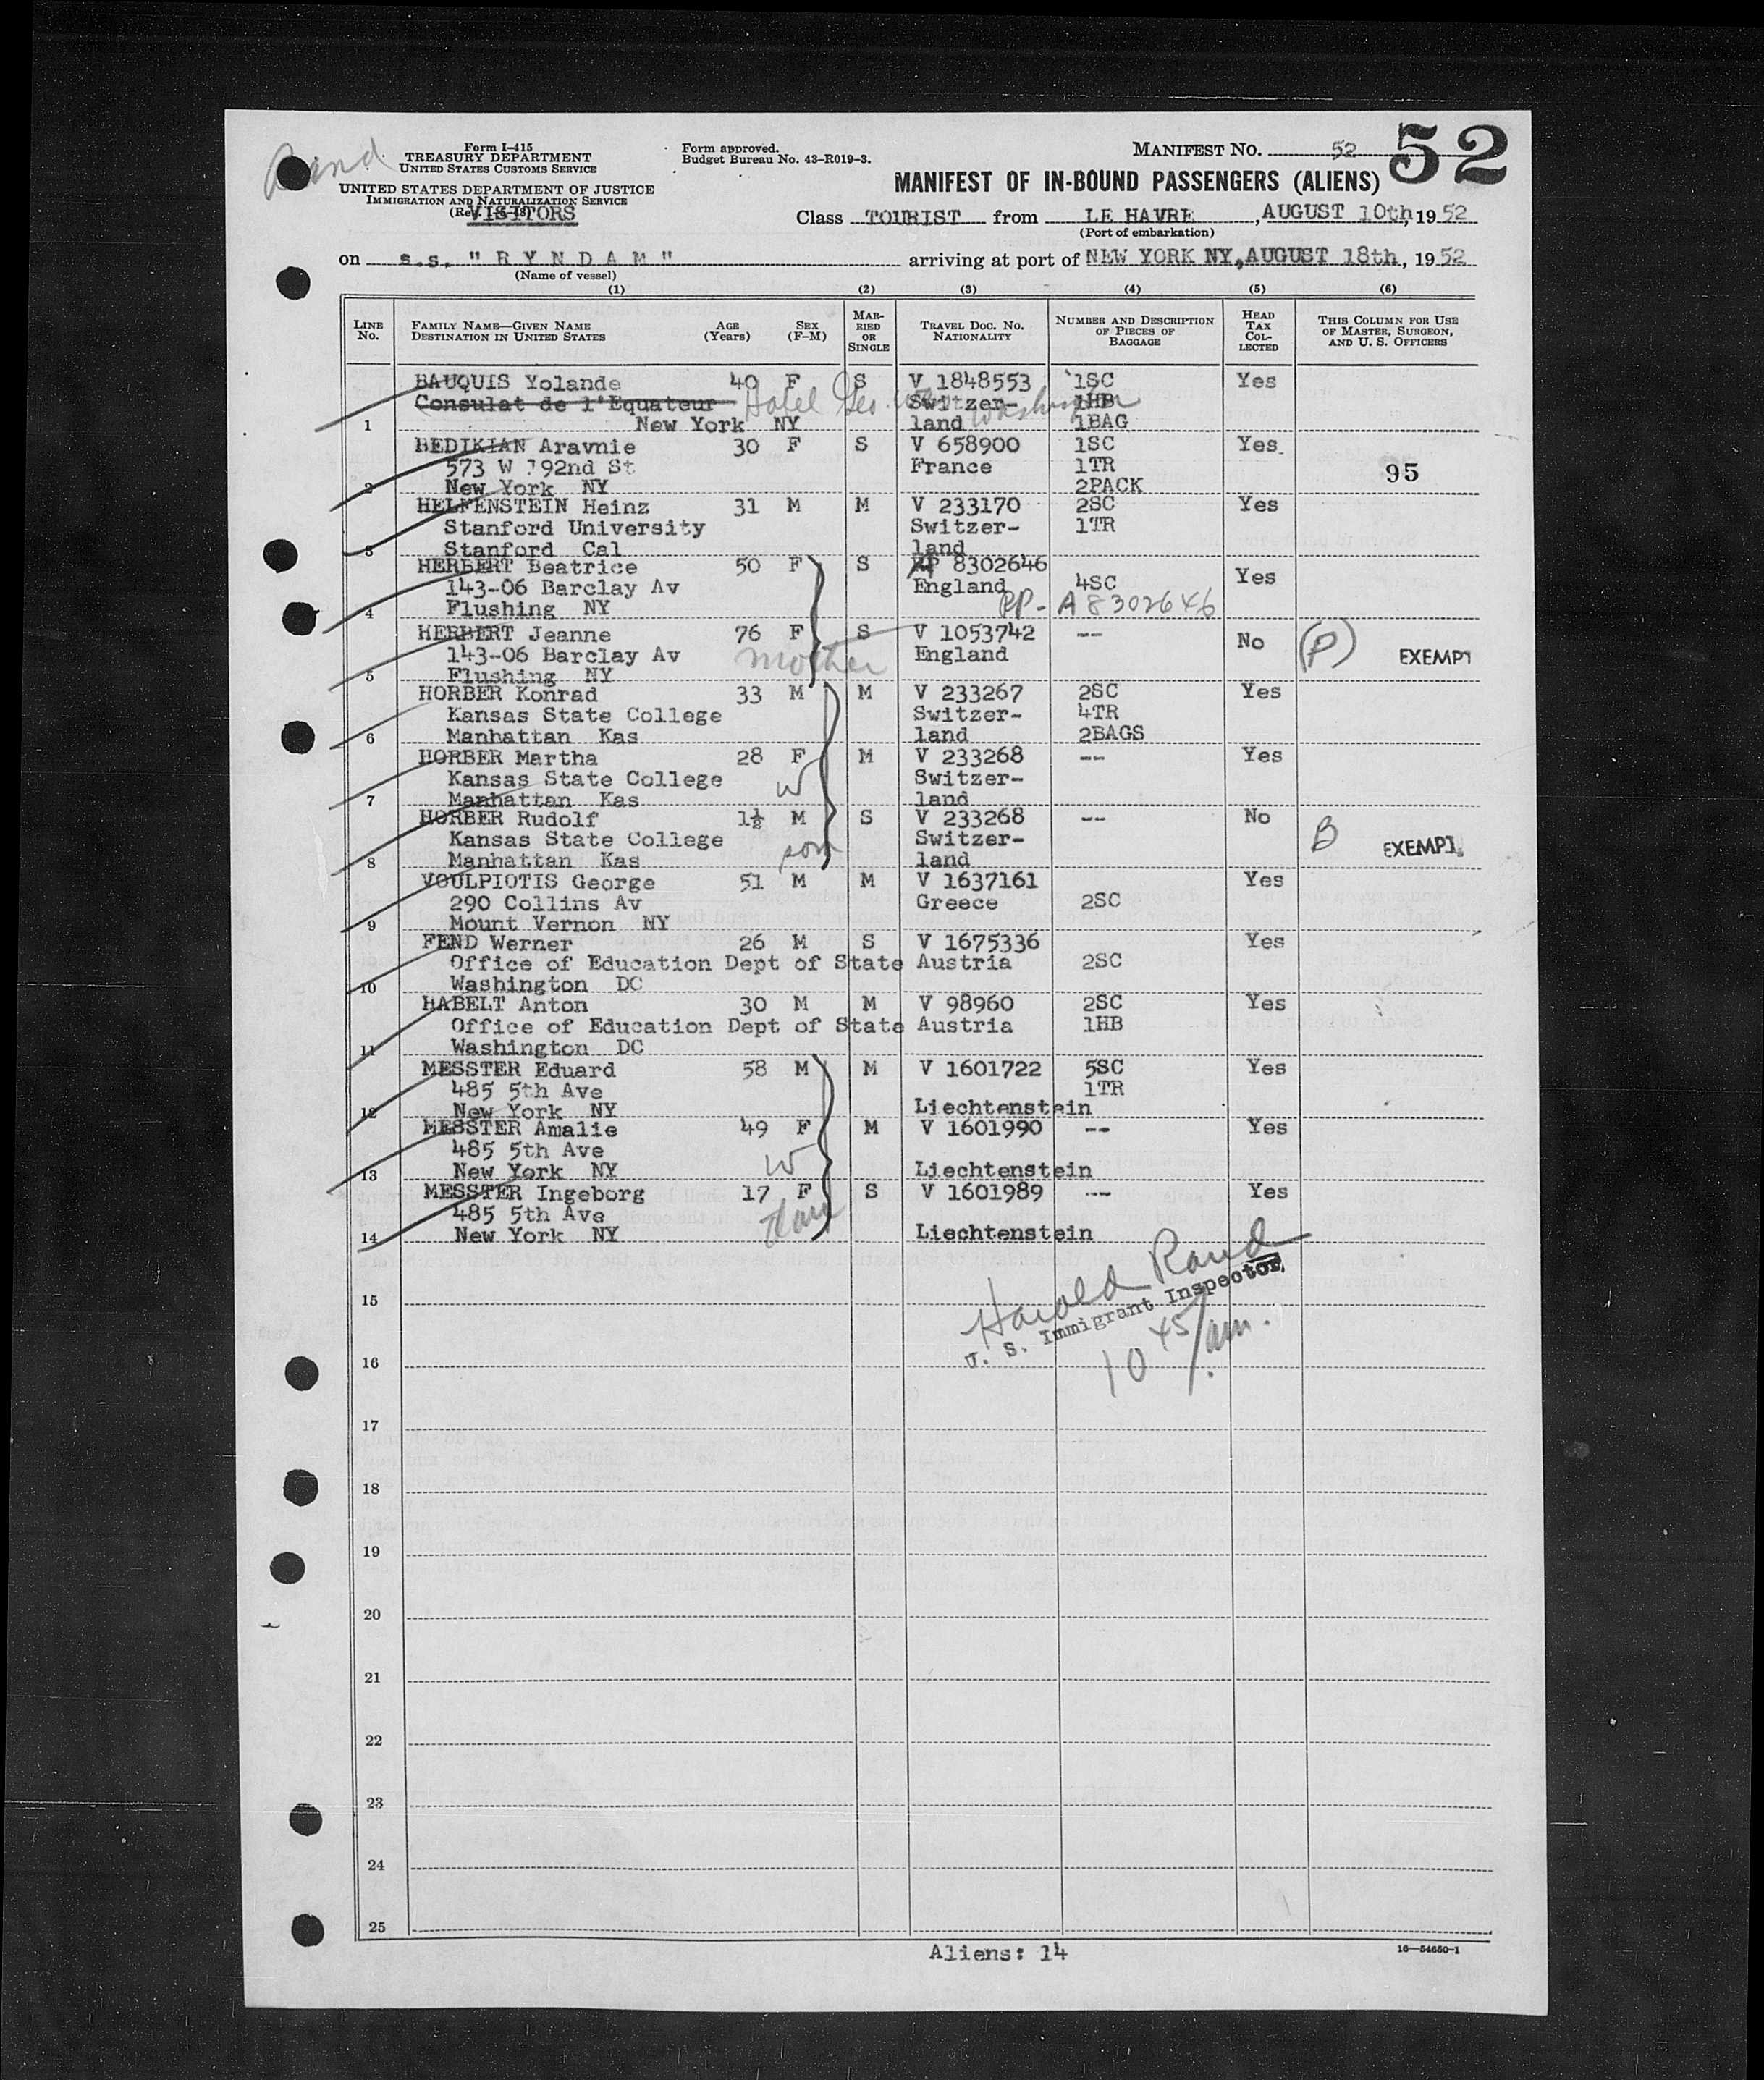 Rand
Form I-415
TREASURY DEPARTMENT
UNITED STATES CUSTOMS SERVICE
UNITED STATES DEPARTMENT OF JUSTICE
IMMIGRATION AND NATURALIZATION SERVICE
VISITORS
Form approved.
Budget Bureau No. 43-R019-3.
MANIFEST NO. 52
52
MANIFEST OF IN-BOUND PASSENGERS (ALIENS)
Class TOURIST from LE HAVRE, AUGUST 10th, 1952
(Port of embarkation)
on s.s. "RYNDAM" arriving at port of NEW YORK NY, AUGUST 18th, 1952
(Name of vessel)
(1) (2) (3) (4) (5) (6)
LINE NO. FAMILY NAME—GIVEN NAME DESTINATION IN UNITED STATES AGE (Years) SEX (F-M) MARRIED OR SINGLE TRAVEL DOC. NO. NATIONALITY NUMBER AND DESCRIPTION OF PIECES OF BAGGAGE HEAD TAX COLLECTED THIS COLUMN FOR USE OF MASTER, SURGEON, AND U. S. OFFICERS
BAUQUIS Yolande 40 F S V 1848553 1SC Yes
Consulat de l'Equateur Hotel Geo. Washington Switzer- 1HB
1 New York NY land 1BAG
BEDIKIAN Aravnie 30 F S V 658900 1SC Yes
573 W 192nd St France 1TR 95
2 New York NY 2PACK
HELFENSTEIN Heinz 31 M M V 233170 2SC Yes
Stanford University Switzer- 1TR
3 Stanford Cal land
HERBERT Beatrice 50 F S RP 8302646 Yes
143-06 Barclay Av England 4SC
4 Flushing NY RP- A8302646
HERBERT Jeanne 76 F S V 1053742 -- No (P) EXEMPT
143-06 Barclay Av mother England
5 Flushing NY
HORBER Konrad 33 M M V 233267 2SC Yes
Kansas State College Switzer- 4TR
6 Manhattan Kas land 2BAGS
HORBER Martha 28 F M V 233268 -- Yes
Kansas State College W Switzer-
7 Manhattan Kas land
HORBER Rudolf 1½ M S V 233268 -- No B EXEMPT
Kansas State College son Switzer-
8 Manhattan Kas land
VOULPIOTIS George 51 M M V 1637161 Yes
290 Collins Av Greece 2SC
9 Mount Vernon NY
FEND Werner 26 M S V 1675336 Yes
Office of Education Dept of State Austria 2SC
10 Washington DC
HABELT Anton 30 M M V 98960 2SC Yes
Office of Education Dept of State Austria 1HB
11 Washington DC
MESSTER Eduard 58 M M V 1601722 5SC Yes
485 5th Ave 1TR
12 New York NY Liechtenstein
MESSTER Amalie 49 F M V 1601990 -- Yes
485 5th Ave
13 New York NY W Liechtenstein
MESSTER Ingeborg 17 F S V 1601989 -- Yes
485 5th Ave
14 New York NY Liechtenstein
Harold Rand
U. S. Immigrant Inspector
10 45/am.
15
16
17
18
19
20
21
22
23
24
25
Aliens: 14
16—54650-1